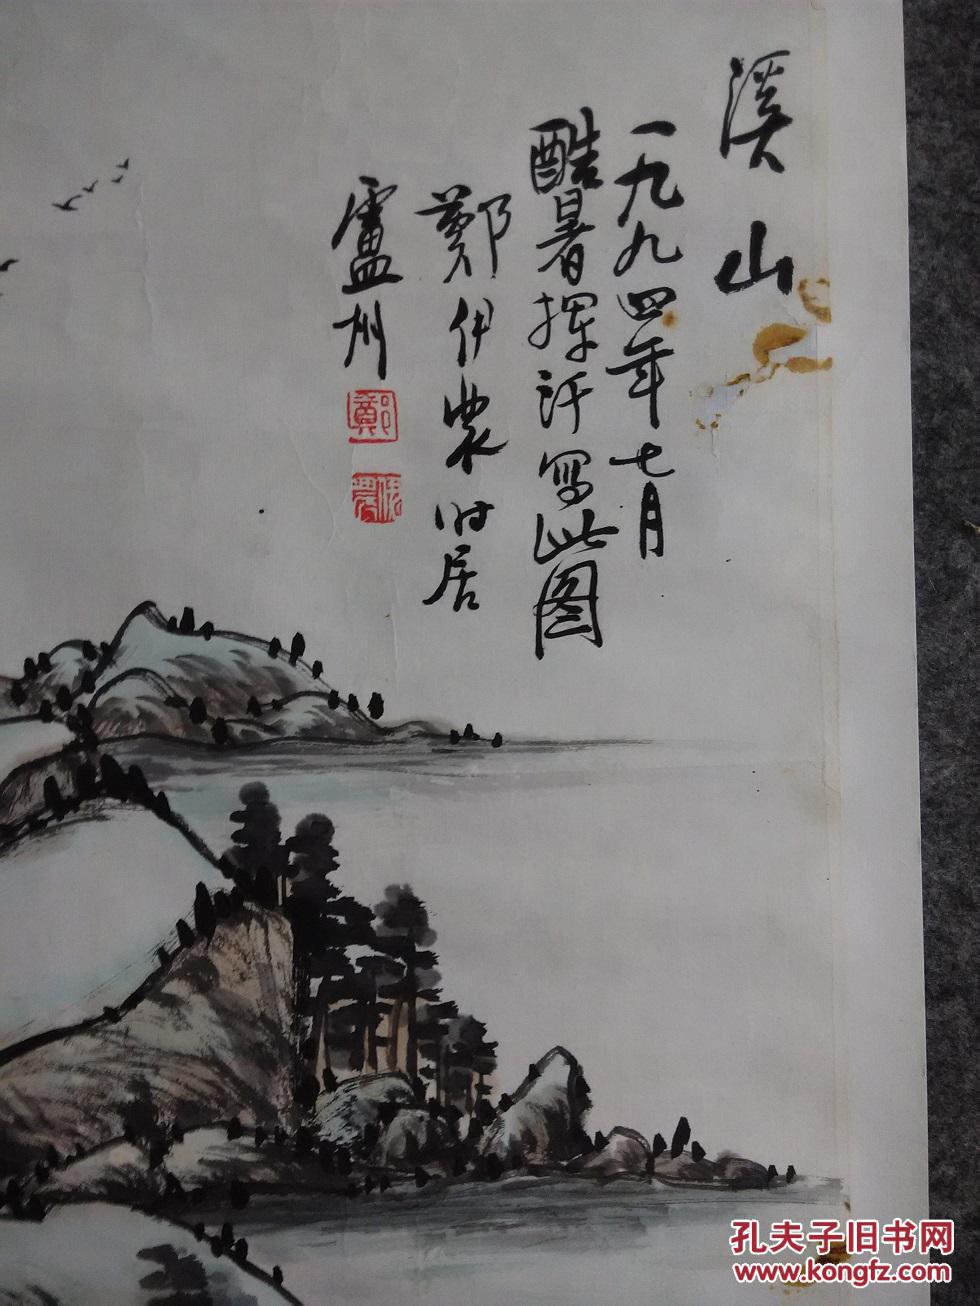 溪山
一九九四年七月
酷暑挥汗写此图
鄭伊農时居
盧州
鄭
伊農
孔夫子旧书网
www.kongfz.com